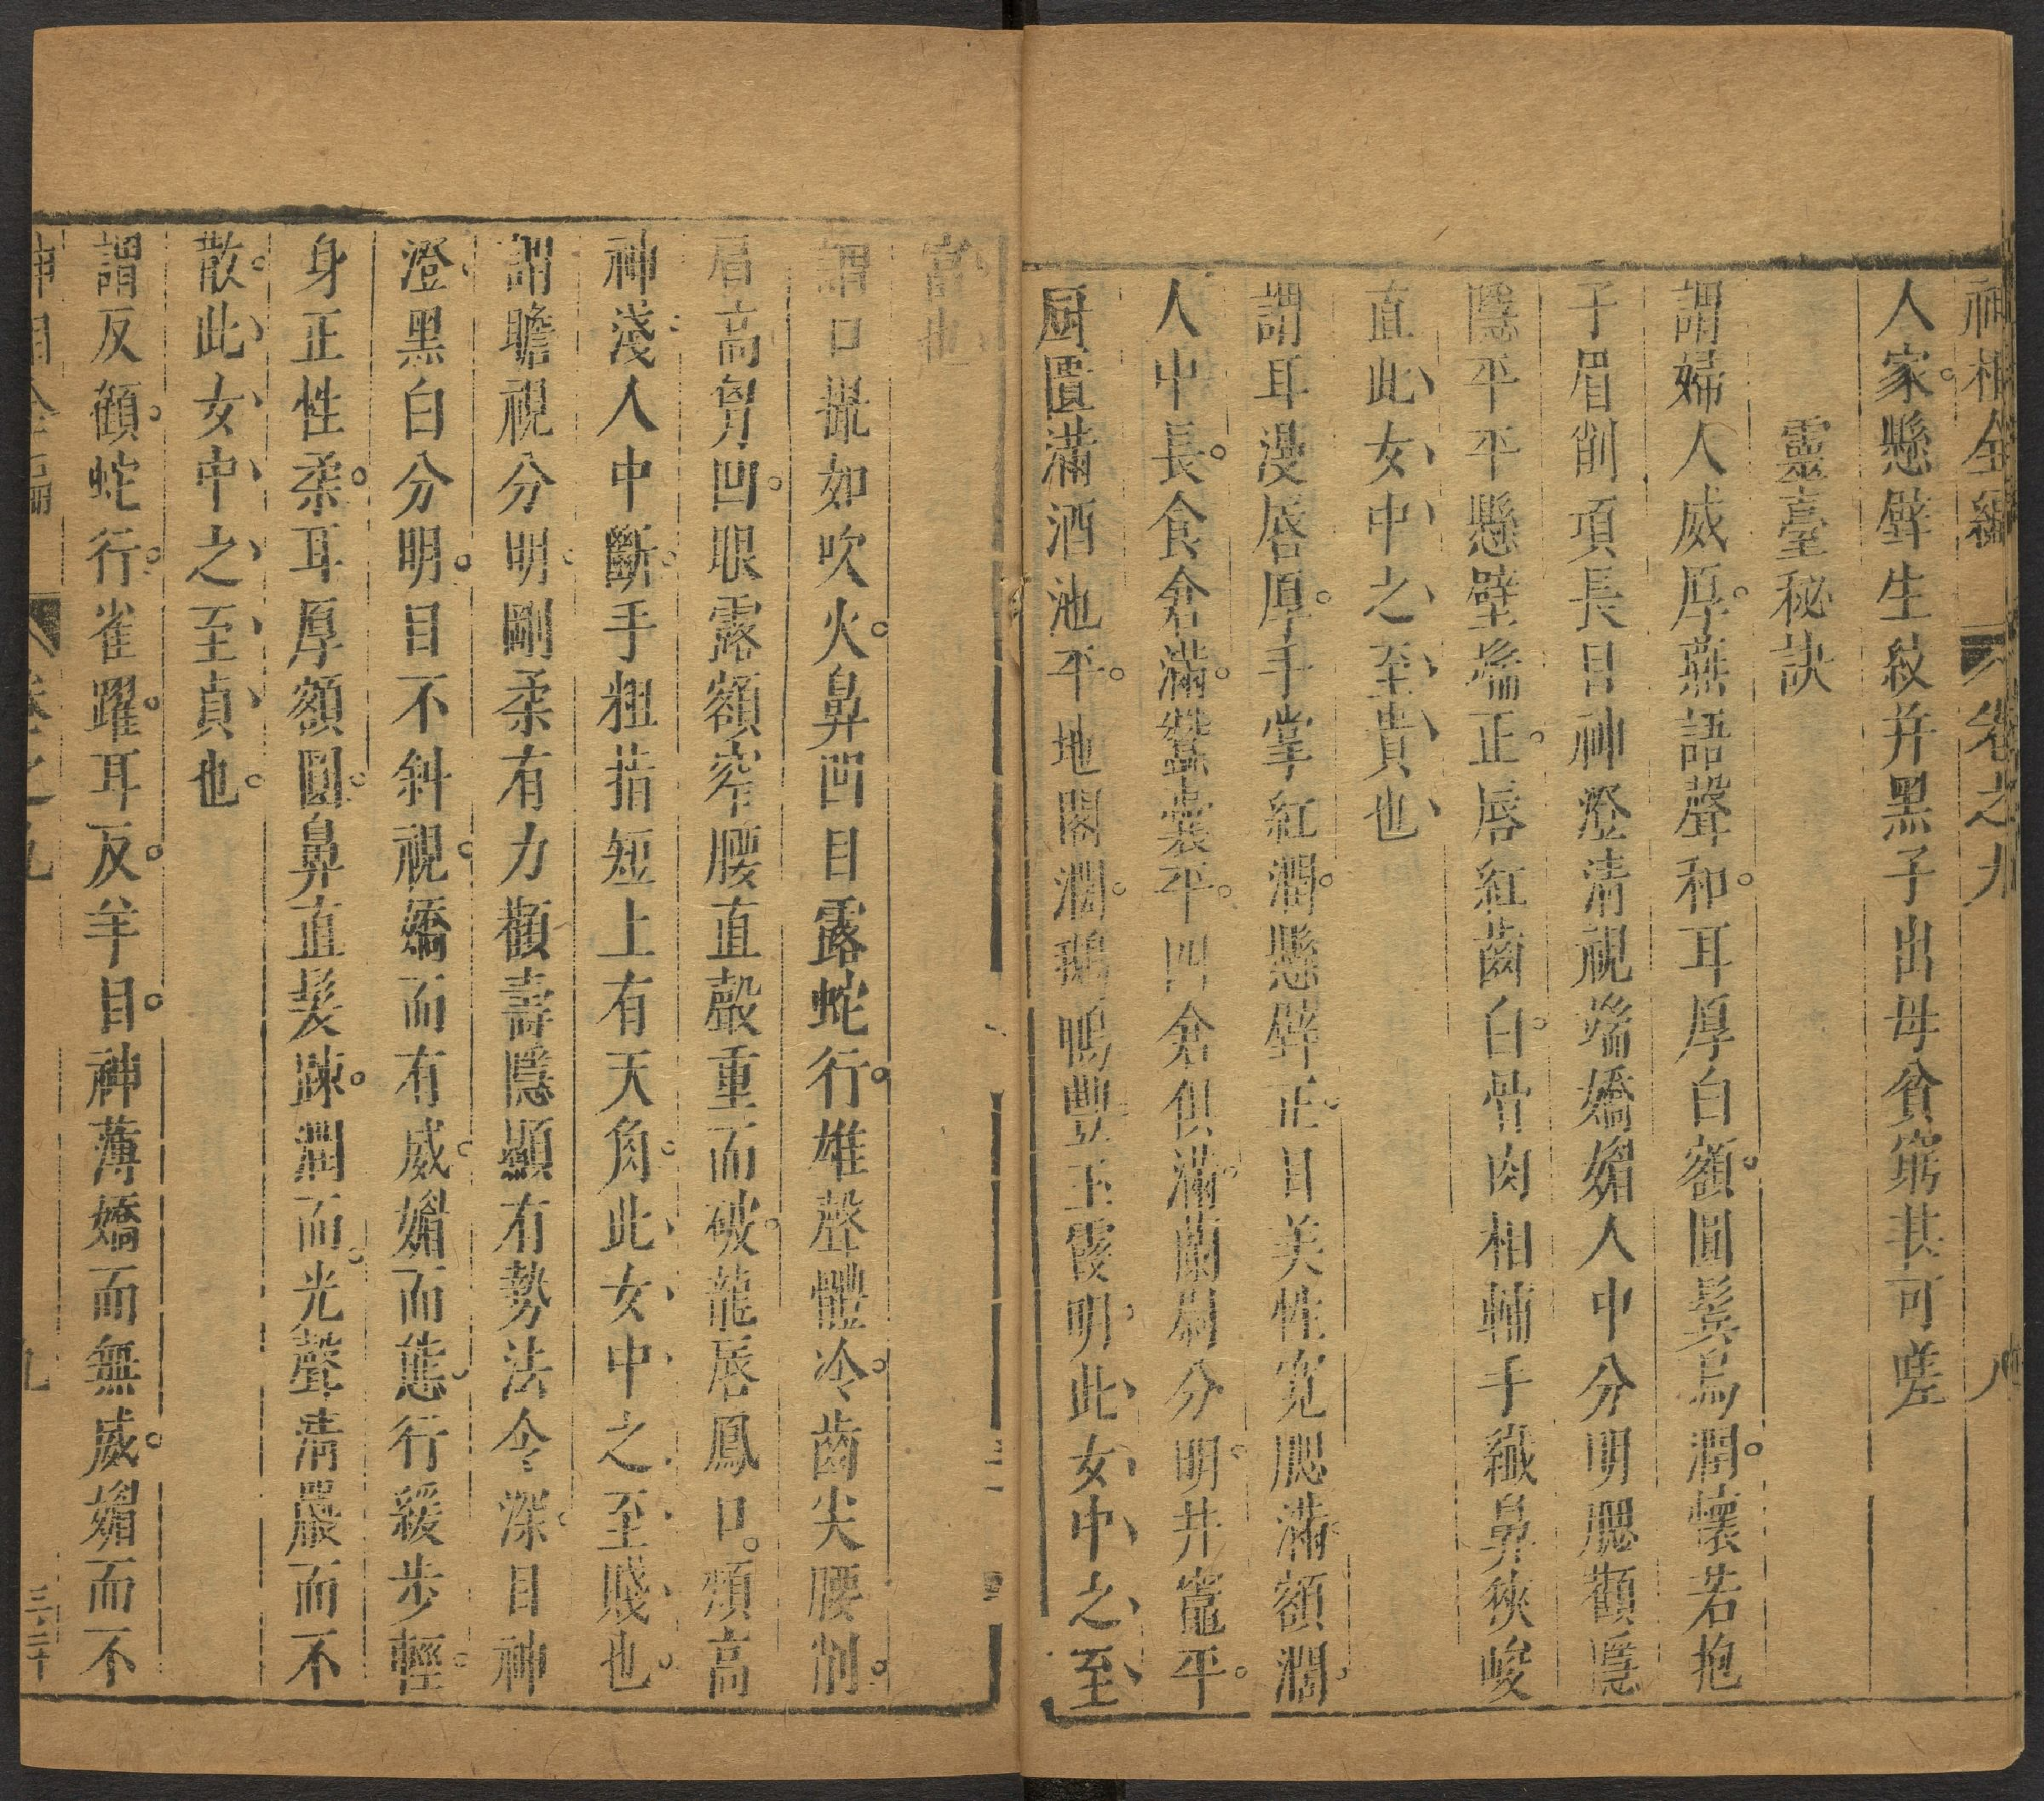 神相全編 卷之九 八
人家懸壁生紋并黑子出母貧窮其可嗟
靈臺秘訣
謂婦人威厚無語聲和耳厚白額圓鬓烏潤懷若抱
子眉削項長目神澄清視端嬌媚人中分明腮顴隱
隱平平懸壁端正唇紅齒白骨肉相輔手纖鼻狹峻
直此女中之至貴也
謂耳漫唇厚手掌紅潤懸壁正目美性寬腮滿額濶
人中長食倉滿蠶囊平四倉俱滿蘭尉分明井竈平
厨匱滿酒池平地閣濶鵝鴨豐玉霞明此女中之至
富也
謂口撮如吹火鼻凹目露蛇行雄聲體冷齒尖腰削
眉高胷凹眼露額窄腰直聲重而破龍唇鳳口頰高
神淺人中斷手粗指短上有天角此女中之至賤也
謂瞻視分明剛柔有力顴壽隱顯有勢法令深目神
澄黑白分明目不斜視嬌而有威媚而態行緩步輕
身正性柔耳厚額圓鼻直髮踈潤而光聲清嚴而不
散此女中之至貞也
謂反顧蛇行雀躍耳反羊目神薄嬌而無威媚而不
神相全編 卷之九 九 三二十